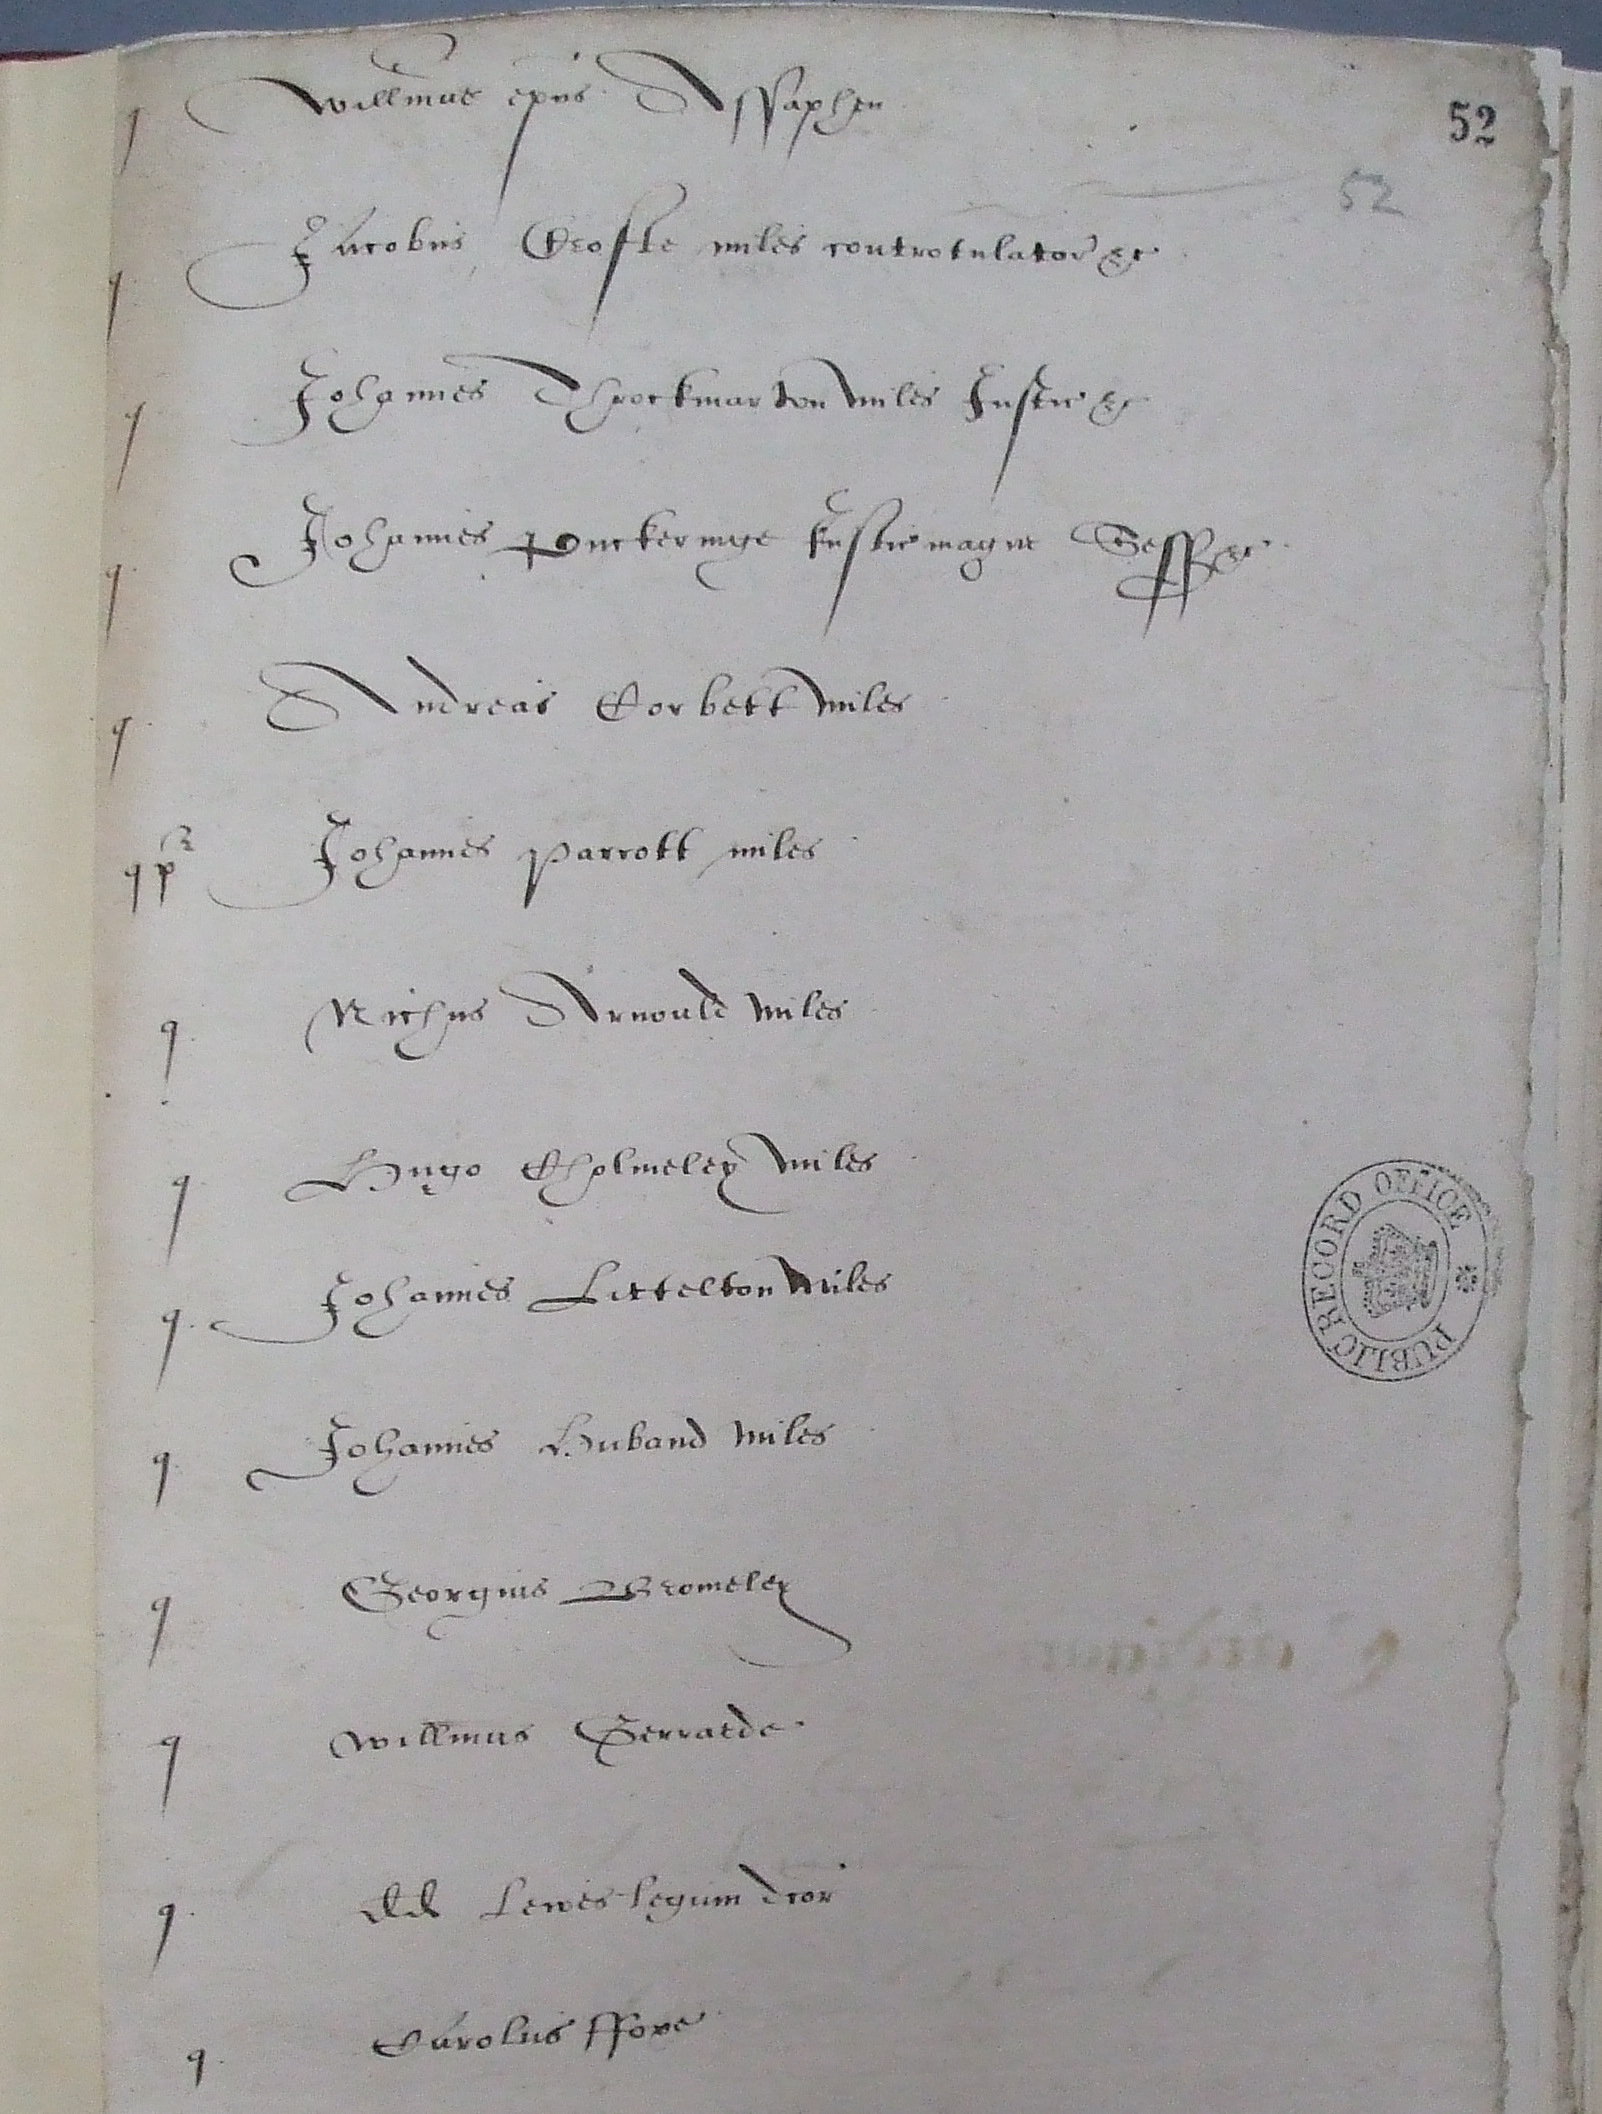 52
52
q Willmus epus Assaphen
q Jacobus Crofte miles controtulator &c
q Johannes Throckmarton miles Justic &c
q Johannes Puckeringe Justic magne Sess &c
q Andreas Corbett miles
q p Johannes Parrott miles
q Nichus Arnould miles
q Hugo Cholmeley miles
q Johannes Littelton miles
q Johannes Huband miles
q Georgius Bromeley
q Willmus Gerrarde
PUBLIC RECORD OFFICE
q dd Lewes legum dcor
q Carolus ffoxe